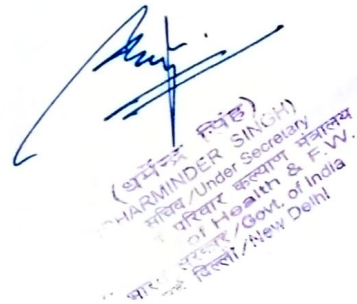 (धर्मेन्द्र सिंह)
DHARMINDER SINGH)
सचिव/Under Secretary
परिवार कल्याण मंत्रालय
of Health & F.W.
सरकार/Govt. of India
दिल्ली/New Delhi